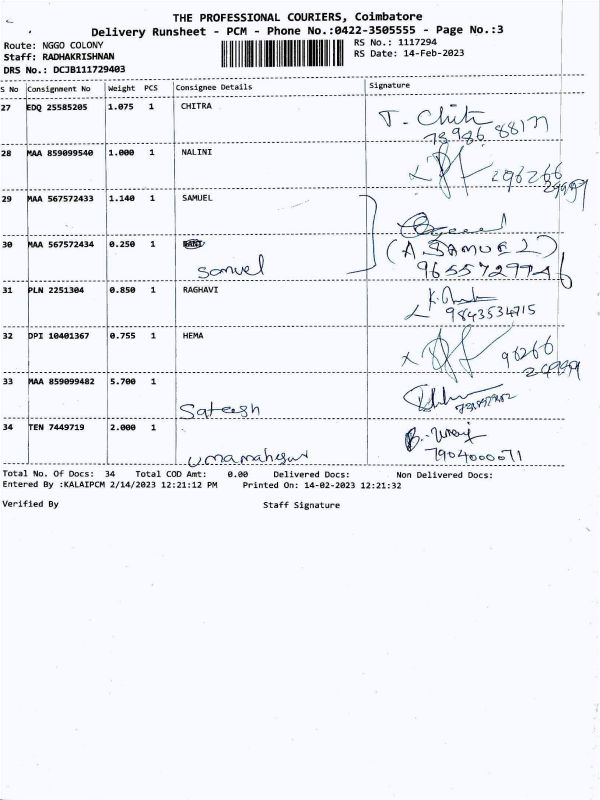 THE PROFESSIONAL COURIERS, Coimbatore
Delivery Runsheet - PCM - Phone No.:0422-3505555 - Page No.:3
Route: NGGO COLONY RS No.: 1117294
Staff: RADHAKRISHNAN RS Date: 14-Feb-2023
DRS No.: DCJB111729403
S No Consignment No Weight PCS Consignee Details Signature
27 EDQ 25585205 1.075 1 CHITRA T. Chitra
28 MAA 859099540 1.000 1 NALINI 296266
29999
29 MAA 567572433 1.140 1 SAMUEL
30 MAA 567572434 0.250 1 (A. SAMUEL)
Samuel
31 PLN 2251304 0.850 1 RAGHAVI
9843534715
32 DPI 10401367 0.755 1 HEMA 96266
33 MAA 859099482 5.700 1
Sateesh
34 TEN 7449719 2.000 1
Umamaheswari 7904000071
Total No. Of Docs: 34 Total COD Amt: 0.00 Delivered Docs: Non Delivered Docs:
Entered By :KALAIPCM 2/14/2023 12:21:12 PM Printed On: 14-02-2023 12:21:32
Verified By Staff Signature